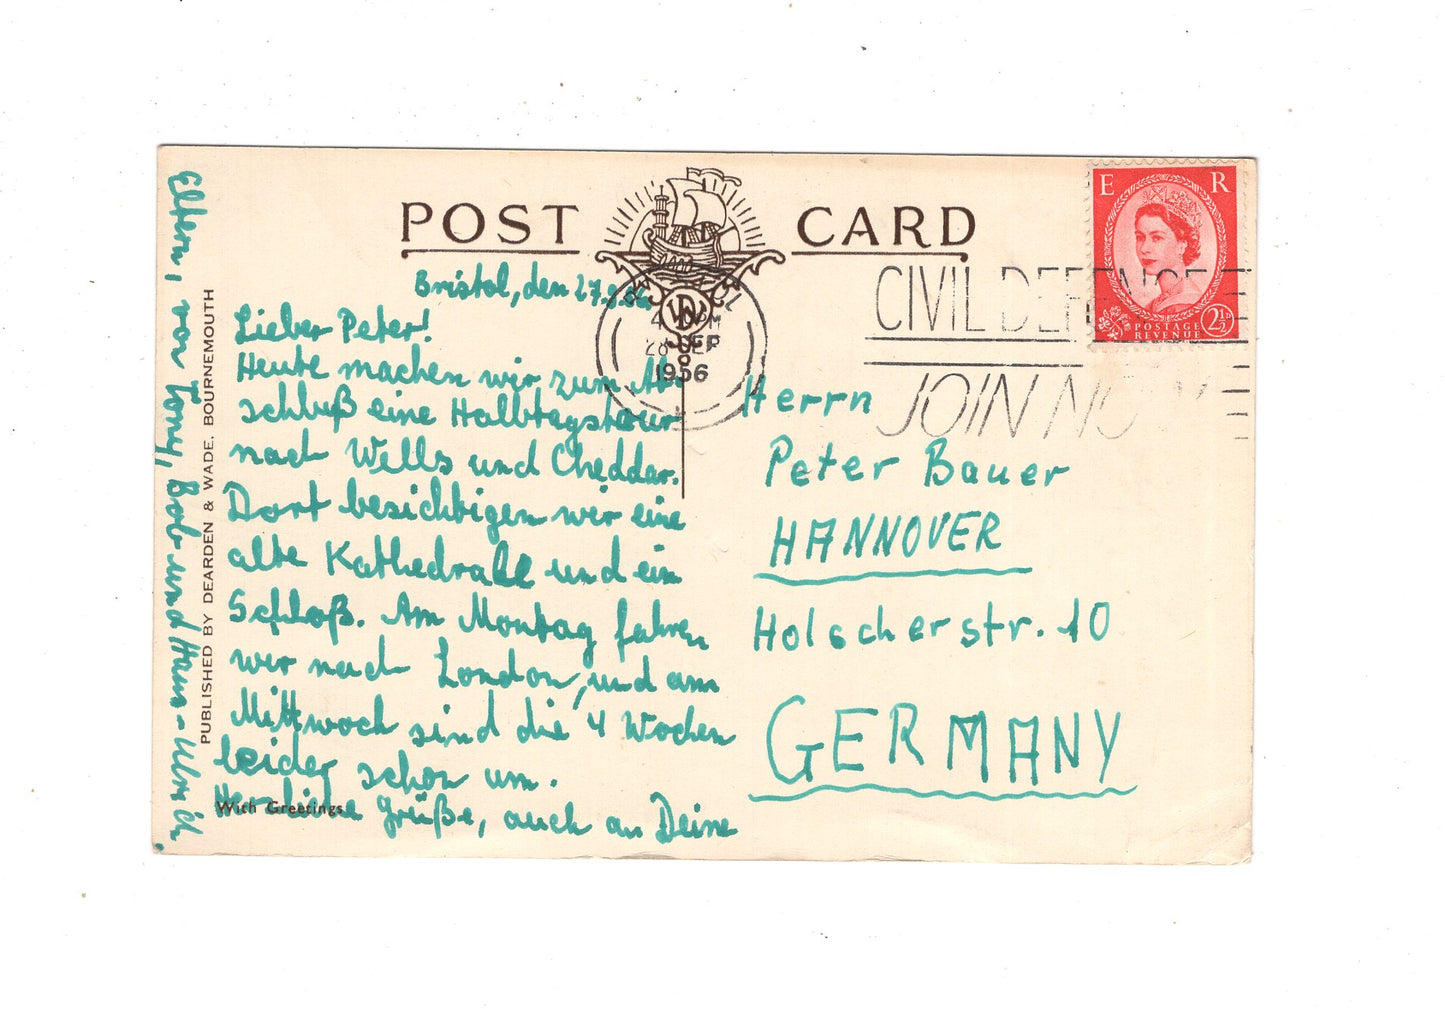 POST CARD
E R
POSTAGE
REVENUE
2½D
BRISTOL
PM
28 SEP
1956
CIVIL DEFENCE
JOIN NOW
Bristol, den 27.9.56
Lieber Peter!
Heute machen wir zum Ab-
schluß eine Halbtagstour
nach Wells und Cheddar.
Dort besichtigen wir eine
alte Kathedrale und ein
Schloß. Am Montag fahren
wir nach London, und am
Mittwoch sind die 4 Wochen
leider schon um.
Herzliche Grüße, auch an Deine
Eltern, von Tony, Bob und Hans-Ulrich.
Herrn
Peter Bauer
HANNOVER
Holscherstr. 10
GERMANY
With Greetings
PUBLISHED BY DEARDEN & WADE, BOURNEMOUTH